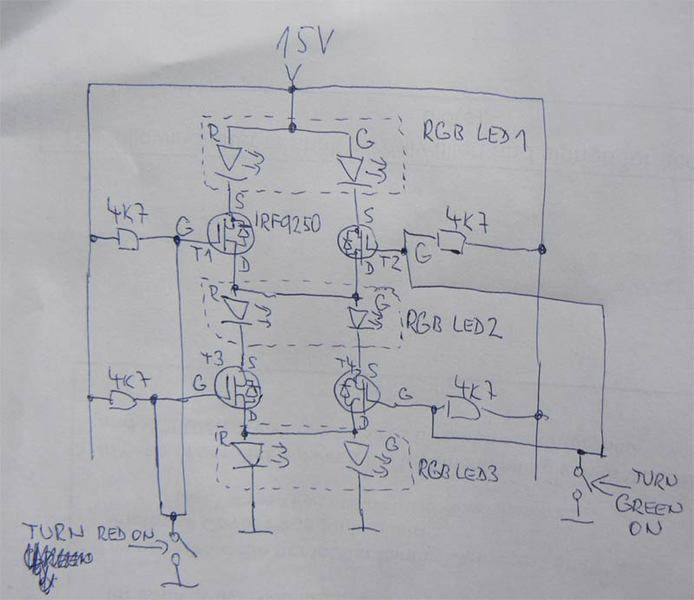 15V
R G RGB LED1
S S
4K7 G IRF9250 4K7
T1 T2 G
D D
R G RGB LED2
T3 S T4 S
4K7 G G 4K7
D D
R G RGB LED3
TURN RED ON
TURN
GREEN
ON